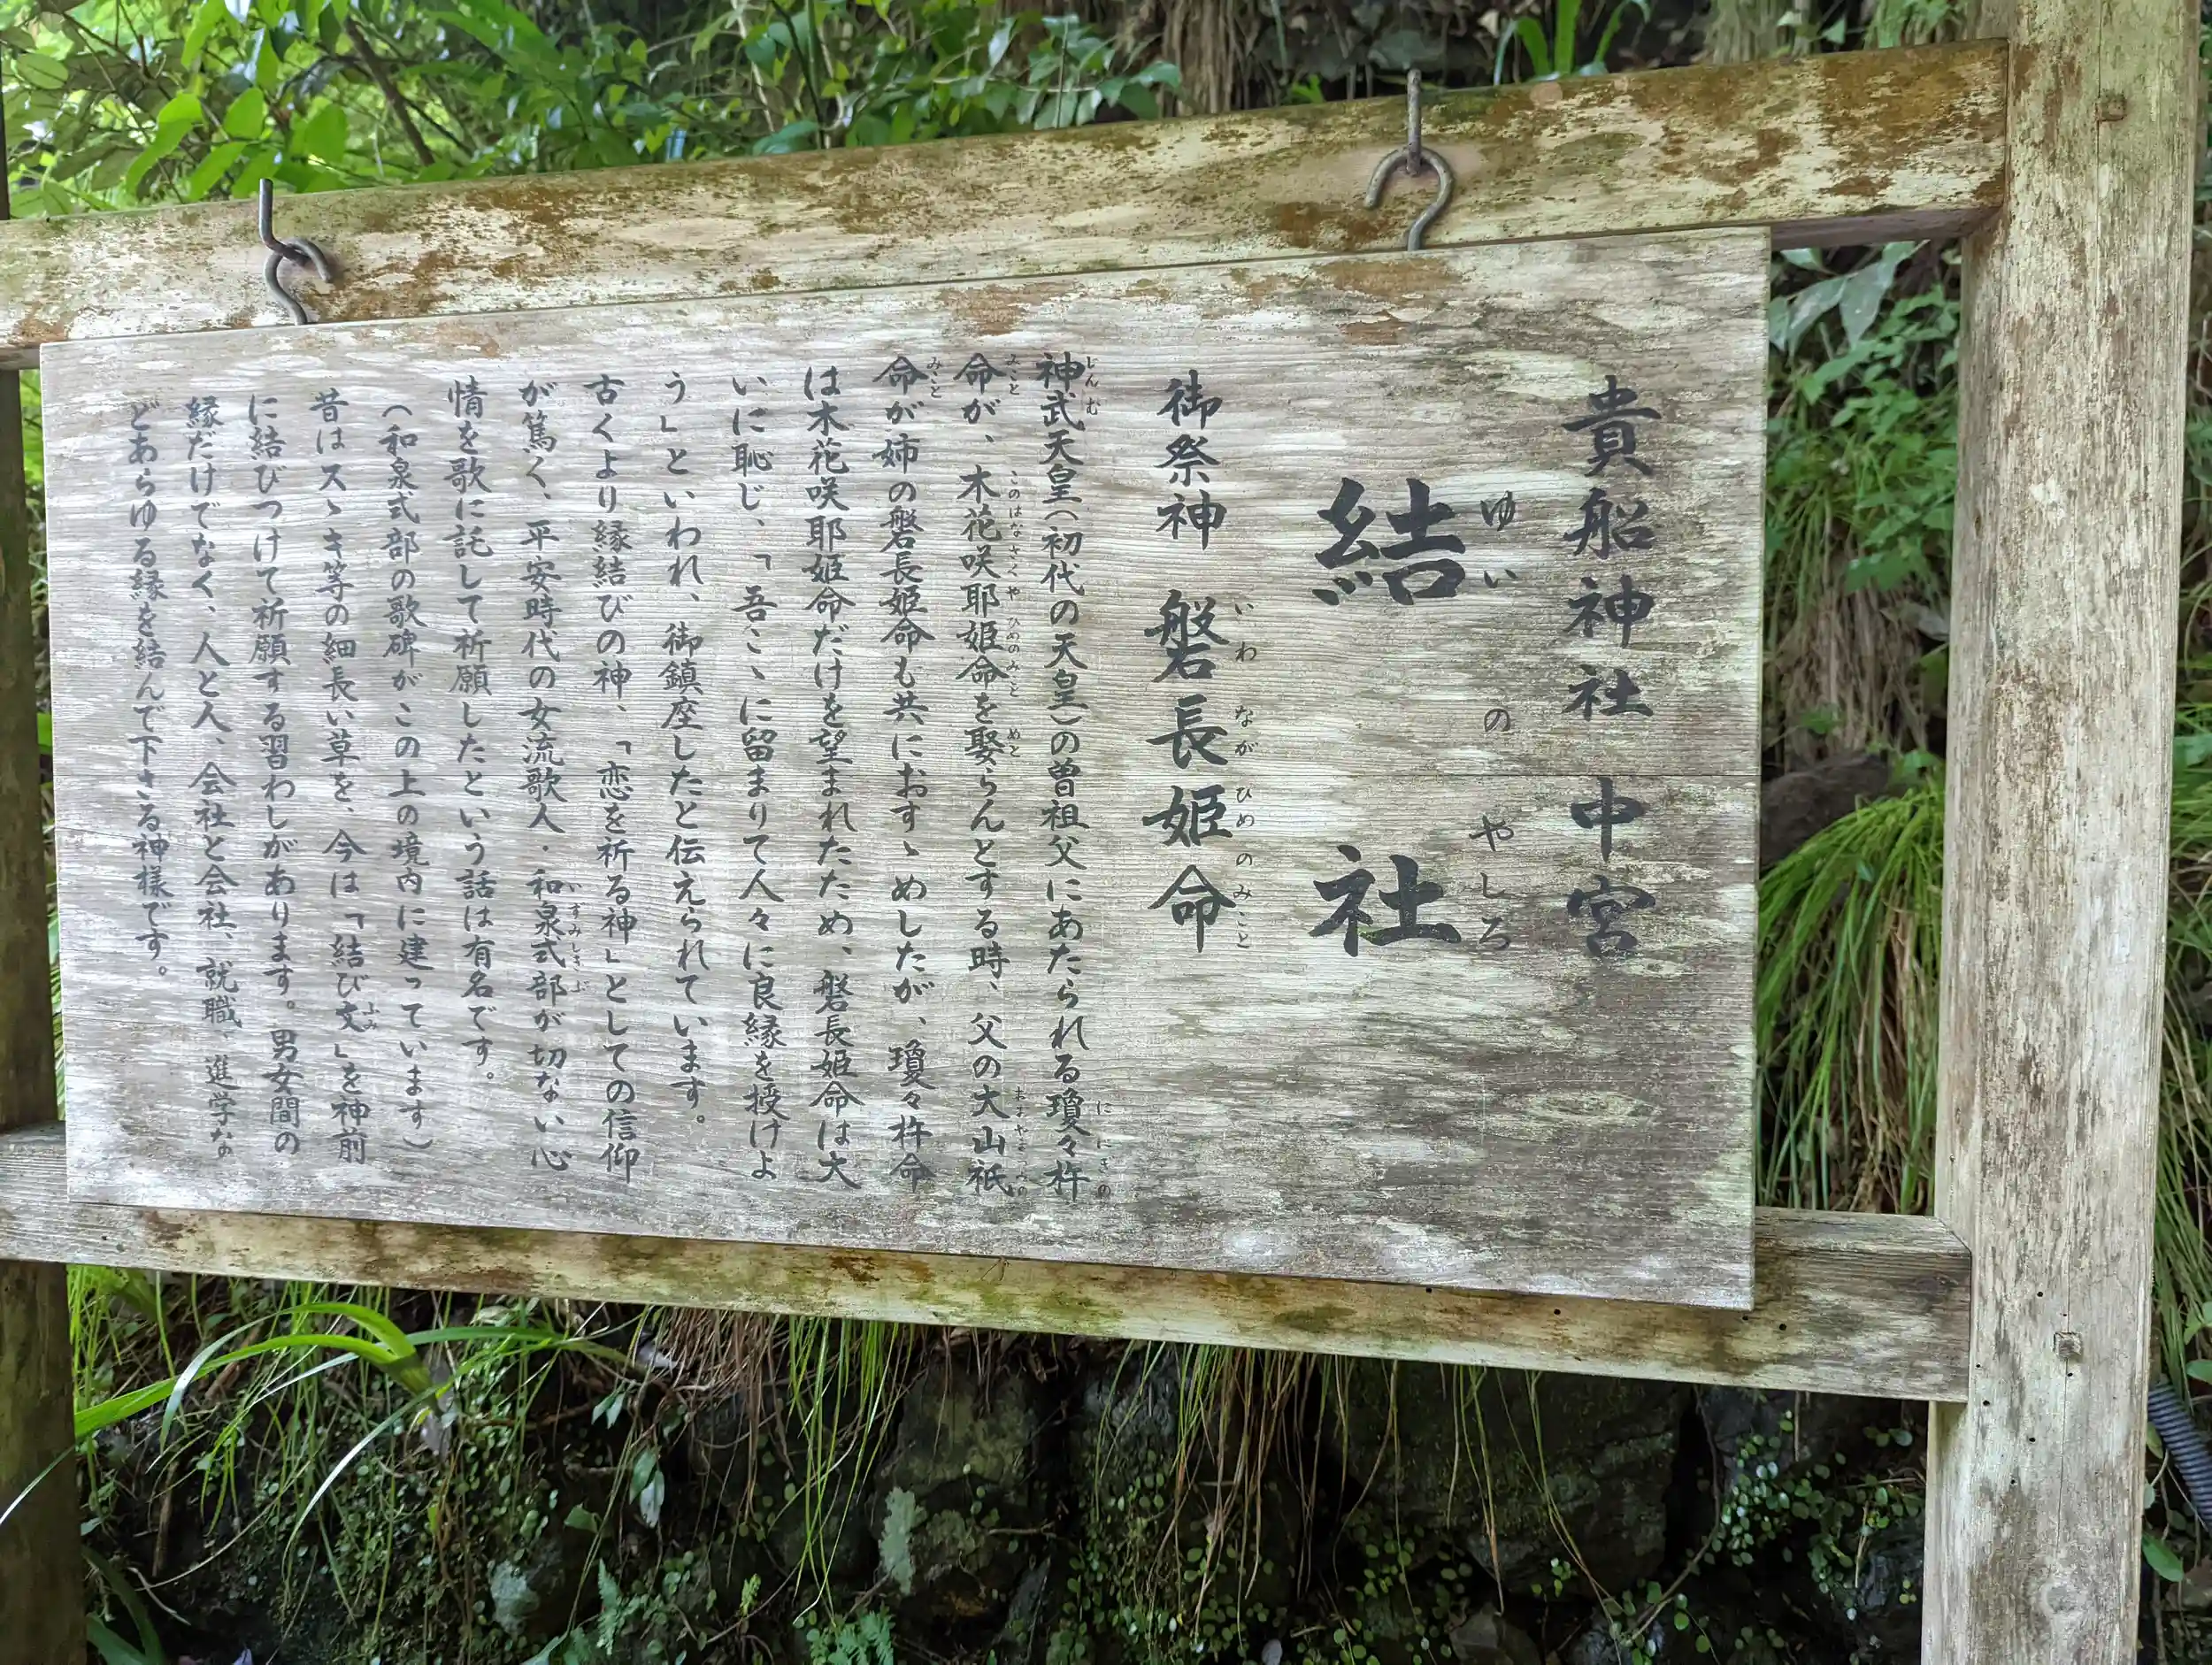 貴船神社 中宮
結社
ゆいのやしろ
御祭神 磐長姫命
いわながひめのみこと
神武天皇(初代の天皇)の曽祖父にあたられる瓊々杵
じんむ
ににぎの
命が、木花咲耶姫命を娶らんとする時、父の大山祇
みこと
このはなさくやひめのみこと
めと
おおやまづみの
命が姉の磐長姫命も共におすゝめしたが、瓊々杵命
みこと
は木花咲耶姫命だけを望まれたため、磐長姫命は大
いに恥じ、「吾こゝに留まりて人々に良縁を授けよ
う」といわれ、御鎮座したと伝えられています。
古くより縁結びの神、「恋を祈る神」としての信仰
が篤く、平安時代の女流歌人・和泉式部が切ない心
いずみしきぶ
情を歌に託して祈願したという話は有名です。
(和泉式部の歌碑がこの上の境内に建っています)
昔はスゝキ等の細長い草を、今は「結び文」を神前
ふみ
に結びつけて祈願する習わしがあります。男女間の
縁だけでなく、人と人、会社と会社、就職、進学な
どあらゆる縁を結んで下さる神様です。